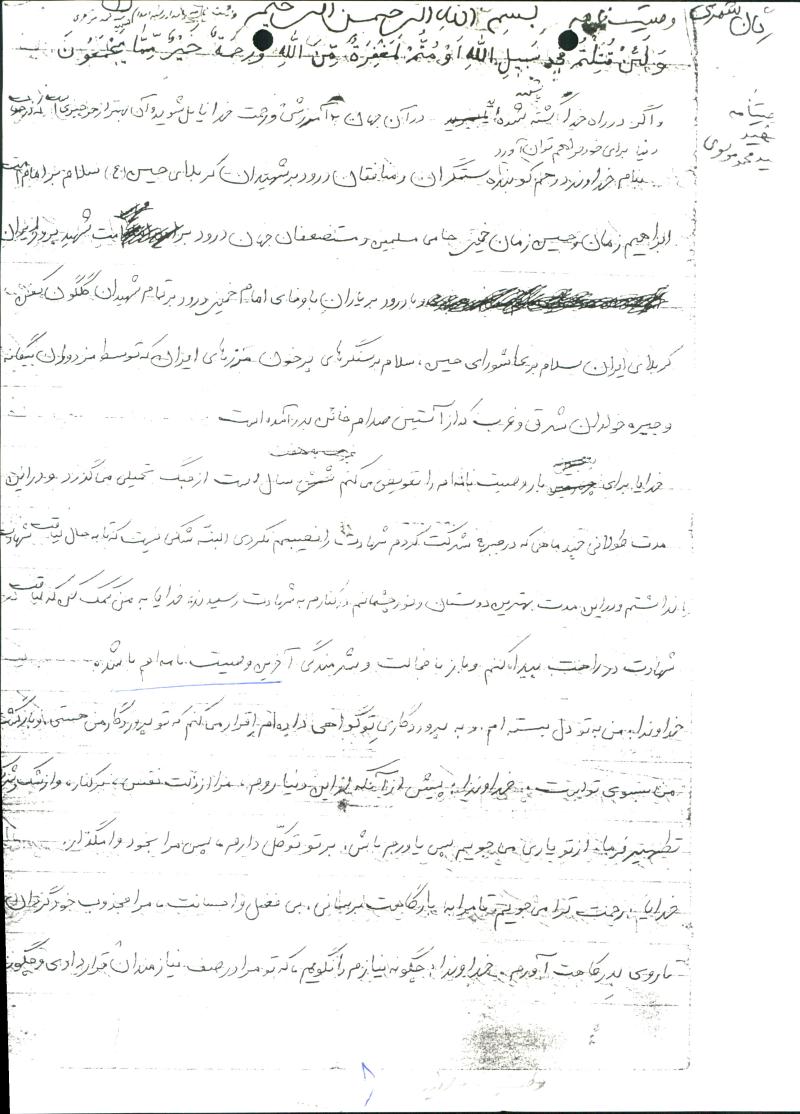 وصیت نامه بسم الله الرحمن الرحیم
وَلَئِنْ قُتِلْتُمْ فی سَبیلِ اللهِ اَوْ مُتُّمْ لَمَغْفِرَةٌ مِّنَ اللهِ وَرَحْمَةٌ خَیْرٌ مِّمّا یَجْمَعُونَ
و اگر در راه خدا کشته شده در آن جهان به آمرزش و رحمت خدا نایل شوید و آن بهتر از هر چیزی است که در
دنیا برای خود فراهم توان آورد
وصیتنامه
شهید
سید محمد موسوی
بنام خداوند در هم کوبنده ستمگران و منافقان درود بر شهیدان کربلای حسین (ع) سلام بر امام امت
ابراهیم زمان و حسین زمان خمینی حامی مسلمین و مستضعفان جهان درود بر امت شهید پرور ایران
و با درود بر یاران باوفای امام خمینی درود بر تمام شهیدان گلگون کفن
کربلای ایران سلام بر عاشورای حسین، سلام بر سنگرهای پر خون مرزهای ایران که توسط مزدوران بیگانه
و جیره خواران شرق و غرب که از آستین صدام خائن بدر آمده است
خدایا برای بار وصیت نامه ام را تعویض می کنم شش سال است از جنگ تحمیلی می گذرد و در این
مدت طولانی چند ماهی که در جبهه شرکت کردم شهادت را نصیبم نکردی البته شکی نیست که تا به حال لیاقت شهادت
را نداشتم و در این مدت بهترین دوستان و نور چشمانم در کنارم به شهادت رسیدند خدایا به من کمک کن که لیاقت
شهادت در راهت پیدا کنم و باز با خجالت و شرمندگی آخرین وصیت نامه ام باشد.
خداوندا، من به تو دل بسته ام. و به پروردگاری تو گواهی داده ام اقرار می کنم که تو پروردگار من هستی، و بازگشت
من بسوی توست. خداوندا: پیش از آنکه از این دنیا روم، مرا از ذلت نفس، برکنار، و از شک و شرک
تطهیر فرما. از تو یاری می جویم پس یاورم باش. بر تو توکل دارم، پس مرا بخود وامگذار.
خدایا: رحمت ترا می جویم تا مرا به بارگاهت برسانی. بی فضل و احسانت، مرا مجذوب خود گردان
تا روی بدرگاهت آورم. خداوندا: چگونه نیازم را نگویم، که تو مرا در صف نیازمندان قرار دادی و چگونه